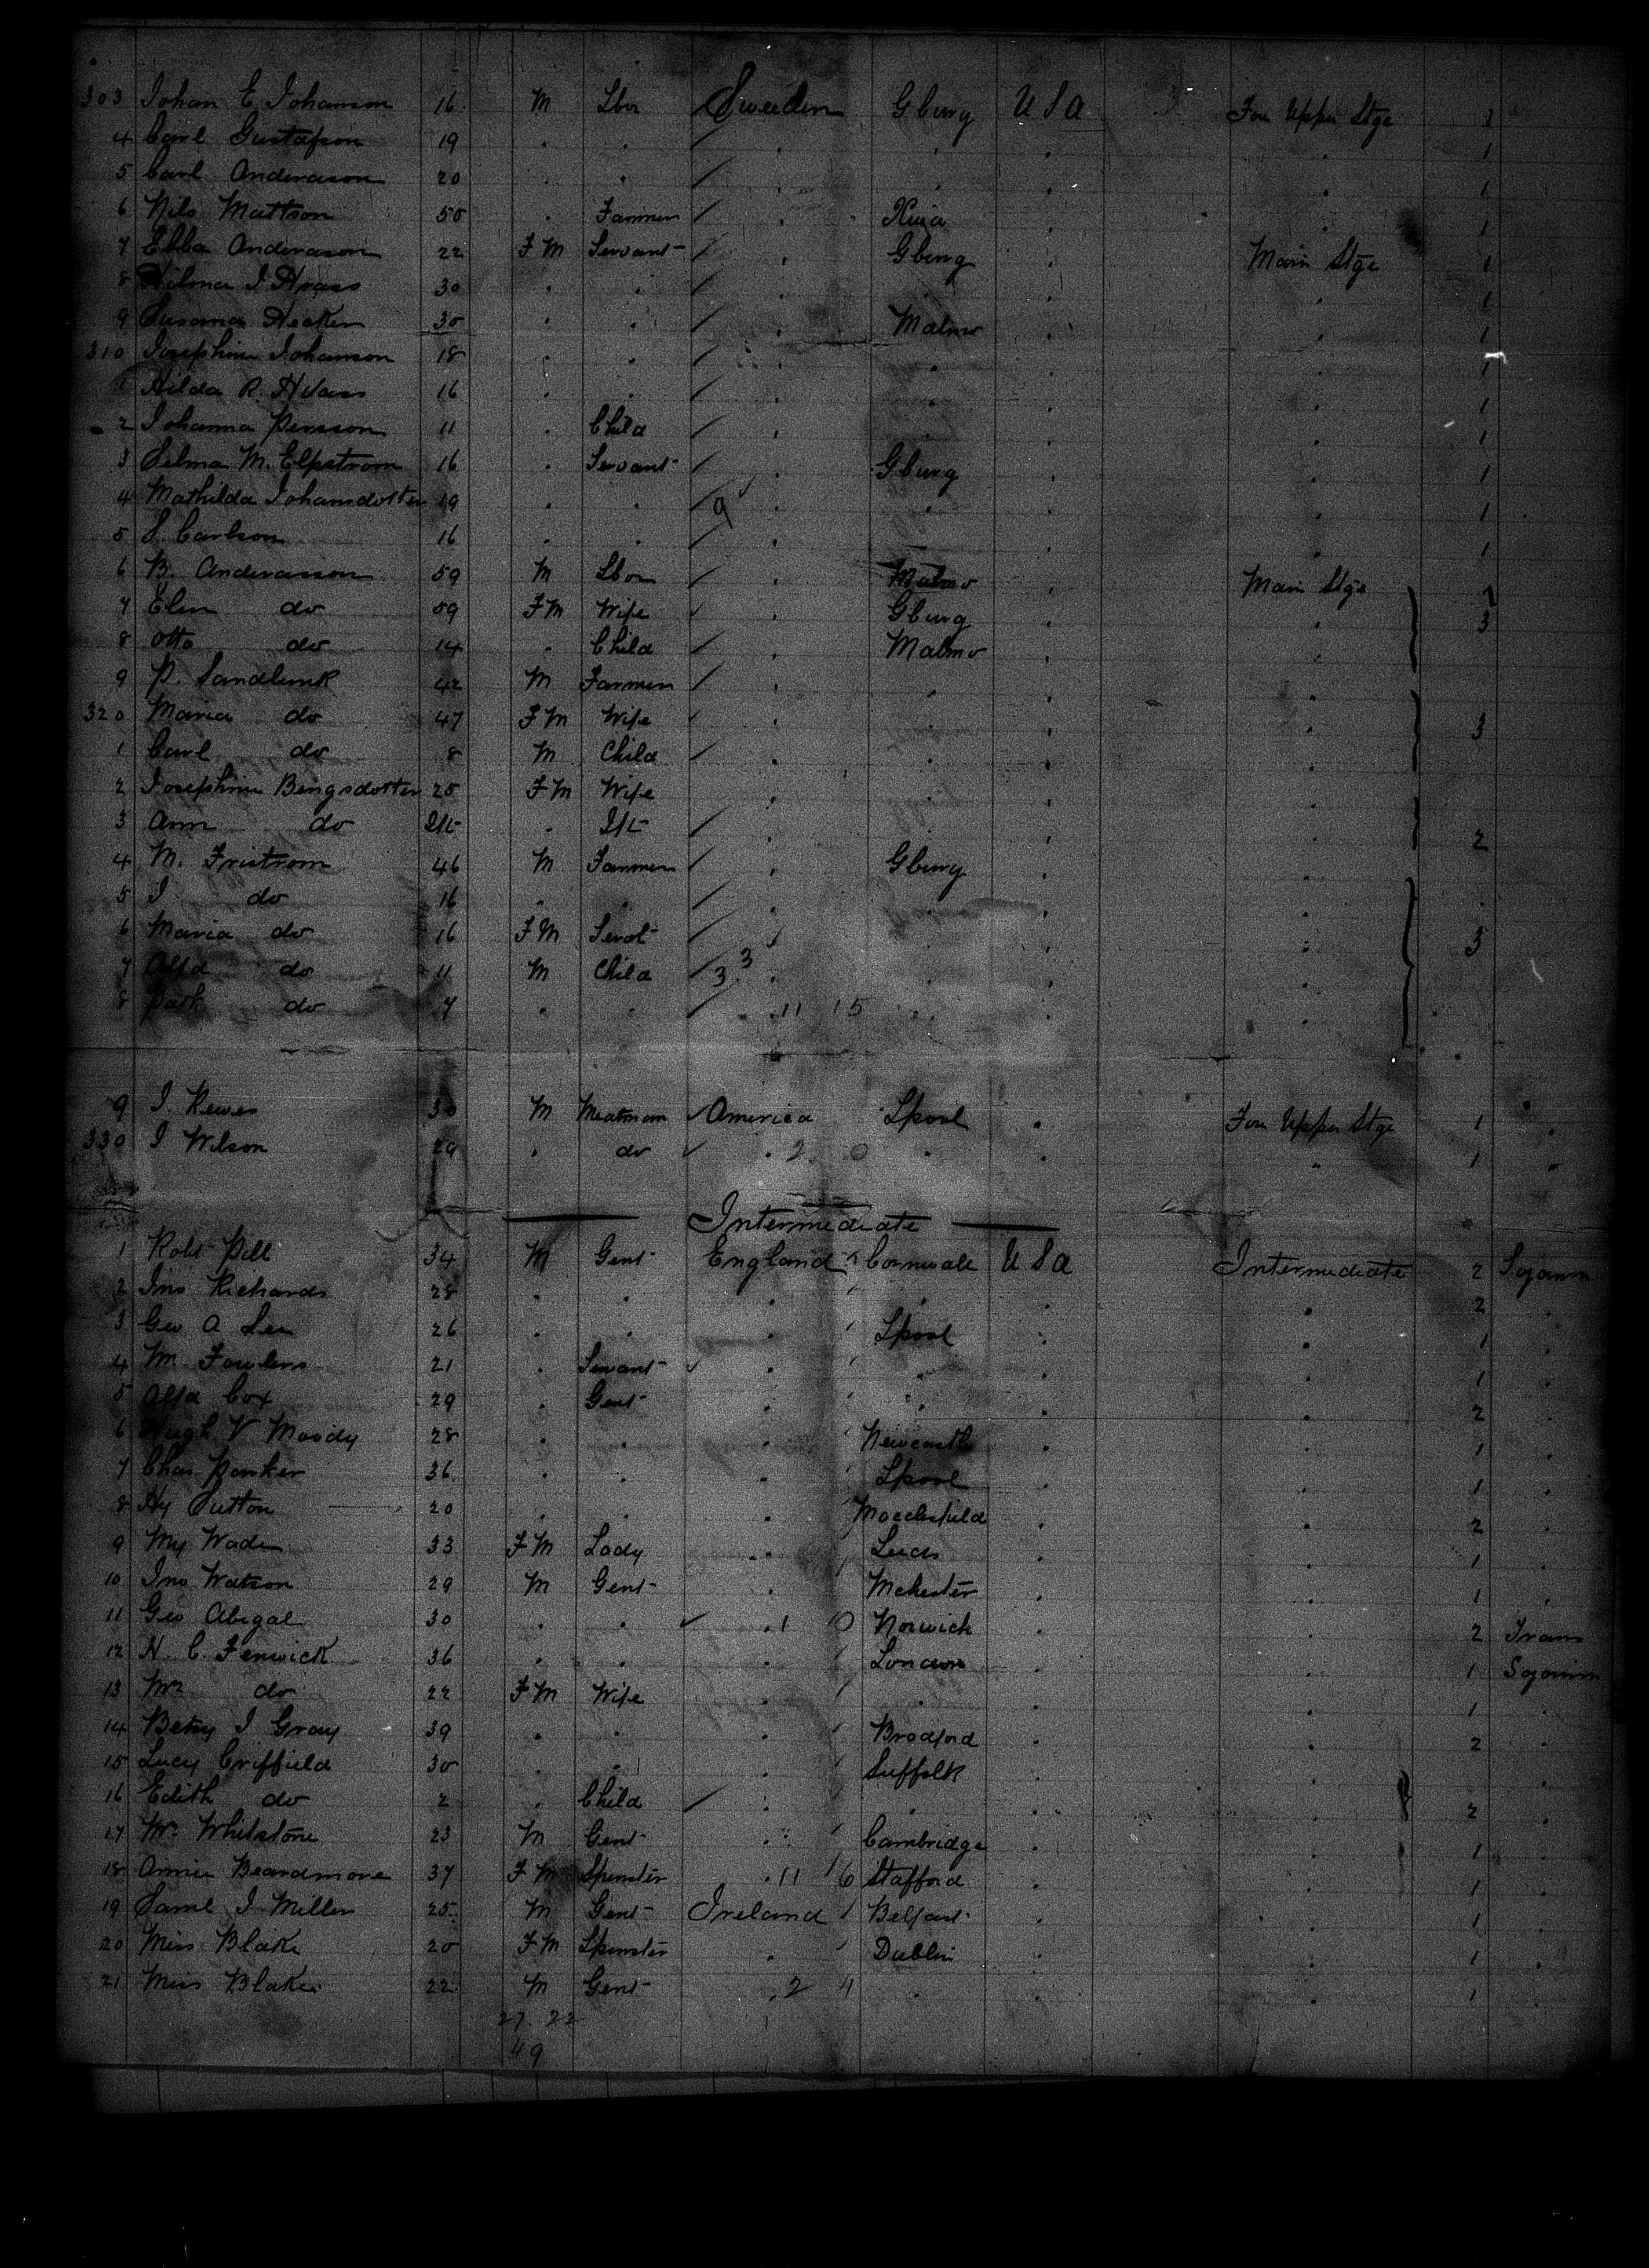 303 Johan E Johanson 16 M Lbor Sweeden Gburg U S A For Upper Stge 1
4 Carl Gustafson 19 " " " " " " 1
5 Carl Anderason 20 " " " " " " 1
6 Nils Mattson 50 " Farmer " " " 1
7 Ebba Anderason 22 F M Servant " Gburg " Main Stge 1
8 Hilma I 30 " " " " " " 1
9 Susana 30 " " " Malmo " " 1
310 Josephine Johanson 18 " " " " " " 1
1 Hilda R. 16 " " " " " " 1
2 Johanna Persson 11 " Child " " " " 1
3 Selma M. Elfstrom 16 " Servant " Gburg " " 1
4 Mathilda Johansdotter 19 " " 9 " " " " 1
5 S. Carlson 16 " " " " " " 1
6 B. Anderasson 59 M Lbor " Malmo " Main Stge
7 Elin do 59 F M Wife " Gburg " " 3
8 Otto do 14 " Child " Malmo " "
9 P. 42 M Farmer " " " "
320 Maria do 47 F M Wife " " " " 3
1 Carl do 8 M Child " " " "
2 Josephine Bengsdotter 25 F M Wife " " " "
3 Ann do Ift " Ift " " " " 2
4 M. Fristrom 46 M Farmer " Gburg " "
5 I do 16 " " " " " "
6 Maria do 16 F M Servt " " " "
7 Alfd do 11 M Child 3 3 " " " "
8 do 7 " " " 11 15 " " "
9 J. 30 M Meatman America Lpool " For Upper Stge 1 "
330 J Wilson 29 " do " 2 0 " " " 1 "
Intermediate
1 Robt Pill 34 M Gent England Cornwall U S A Intermediate 2 Sojourn
2 Jno Richards 28 " " " " " " 2 "
3 Geo A Lee 26 " " " Lpool " " 1 "
4 Wm Fowlers 21 " Servant " " " " 1 "
5 Alfd Cox 29 " Gent " " " " 2 "
6 Hugh V Moody 28 " " " Newcastle " " 1 "
7 Chas Parker 36 " " " Lpool " " 1 "
8 Hy Sutton 20 " " " Macclesfield " " 2 "
9 My Wade 33 F M Lady " Leeds " " 1 "
10 Jno Watson 29 M Gent " Mchester " " 1 "
11 Geo Abigal 30 " " " 1 0 Norwich " " 2 Trans
12 H. C. Fenwick 36 " " " London " " 1 Sojourn
13 Mrs do 22 F M Wife " " " " 1 "
14 Betsy I Gray 39 " " " Bradford " " 2 "
15 Lucy Criffield 30 " " " Suffolk " "
16 Edith do 2 " Child " " " " 2 "
17 Mr Whitstone 23 M Gent " Cambridge " " 1 "
18 Annie Beardmore 37 F M Spinster " 11 16 Stafford " " 1 "
19 Saml I Miller 25 M Gent Ireland Belfast " " 1 "
20 Miss Blake 20 F M Spinster " Dublin " " 1 "
21 Miss Blake 22 M Gent " 2 4 " " " 1 "
27. 22
49